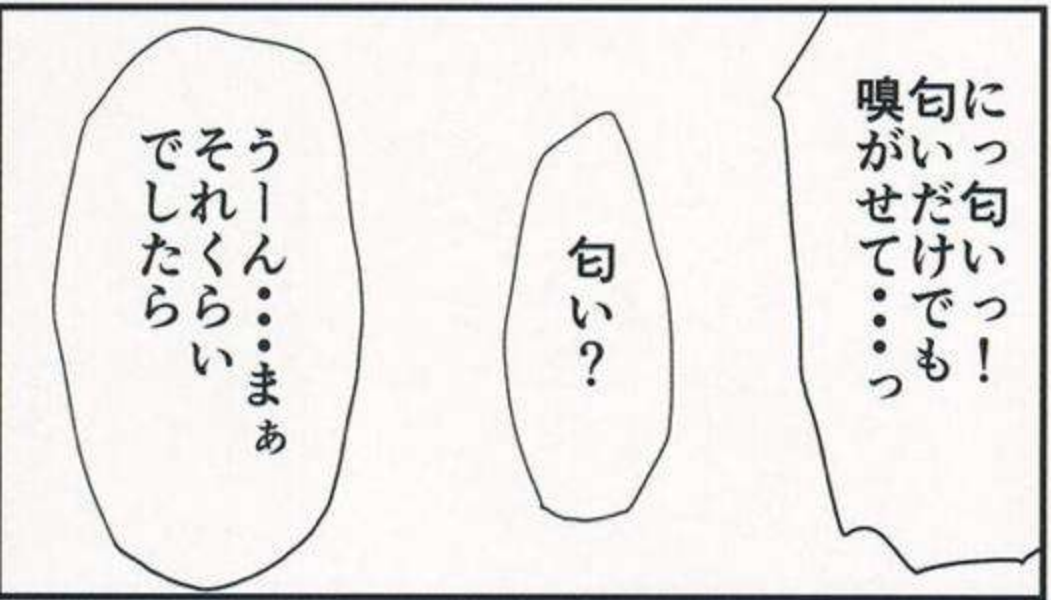 にっ匂いっ！
匂いだけでも
嗅がせて・・・っ
匂い？
うーん・・・まぁ
それくらい
でしたら